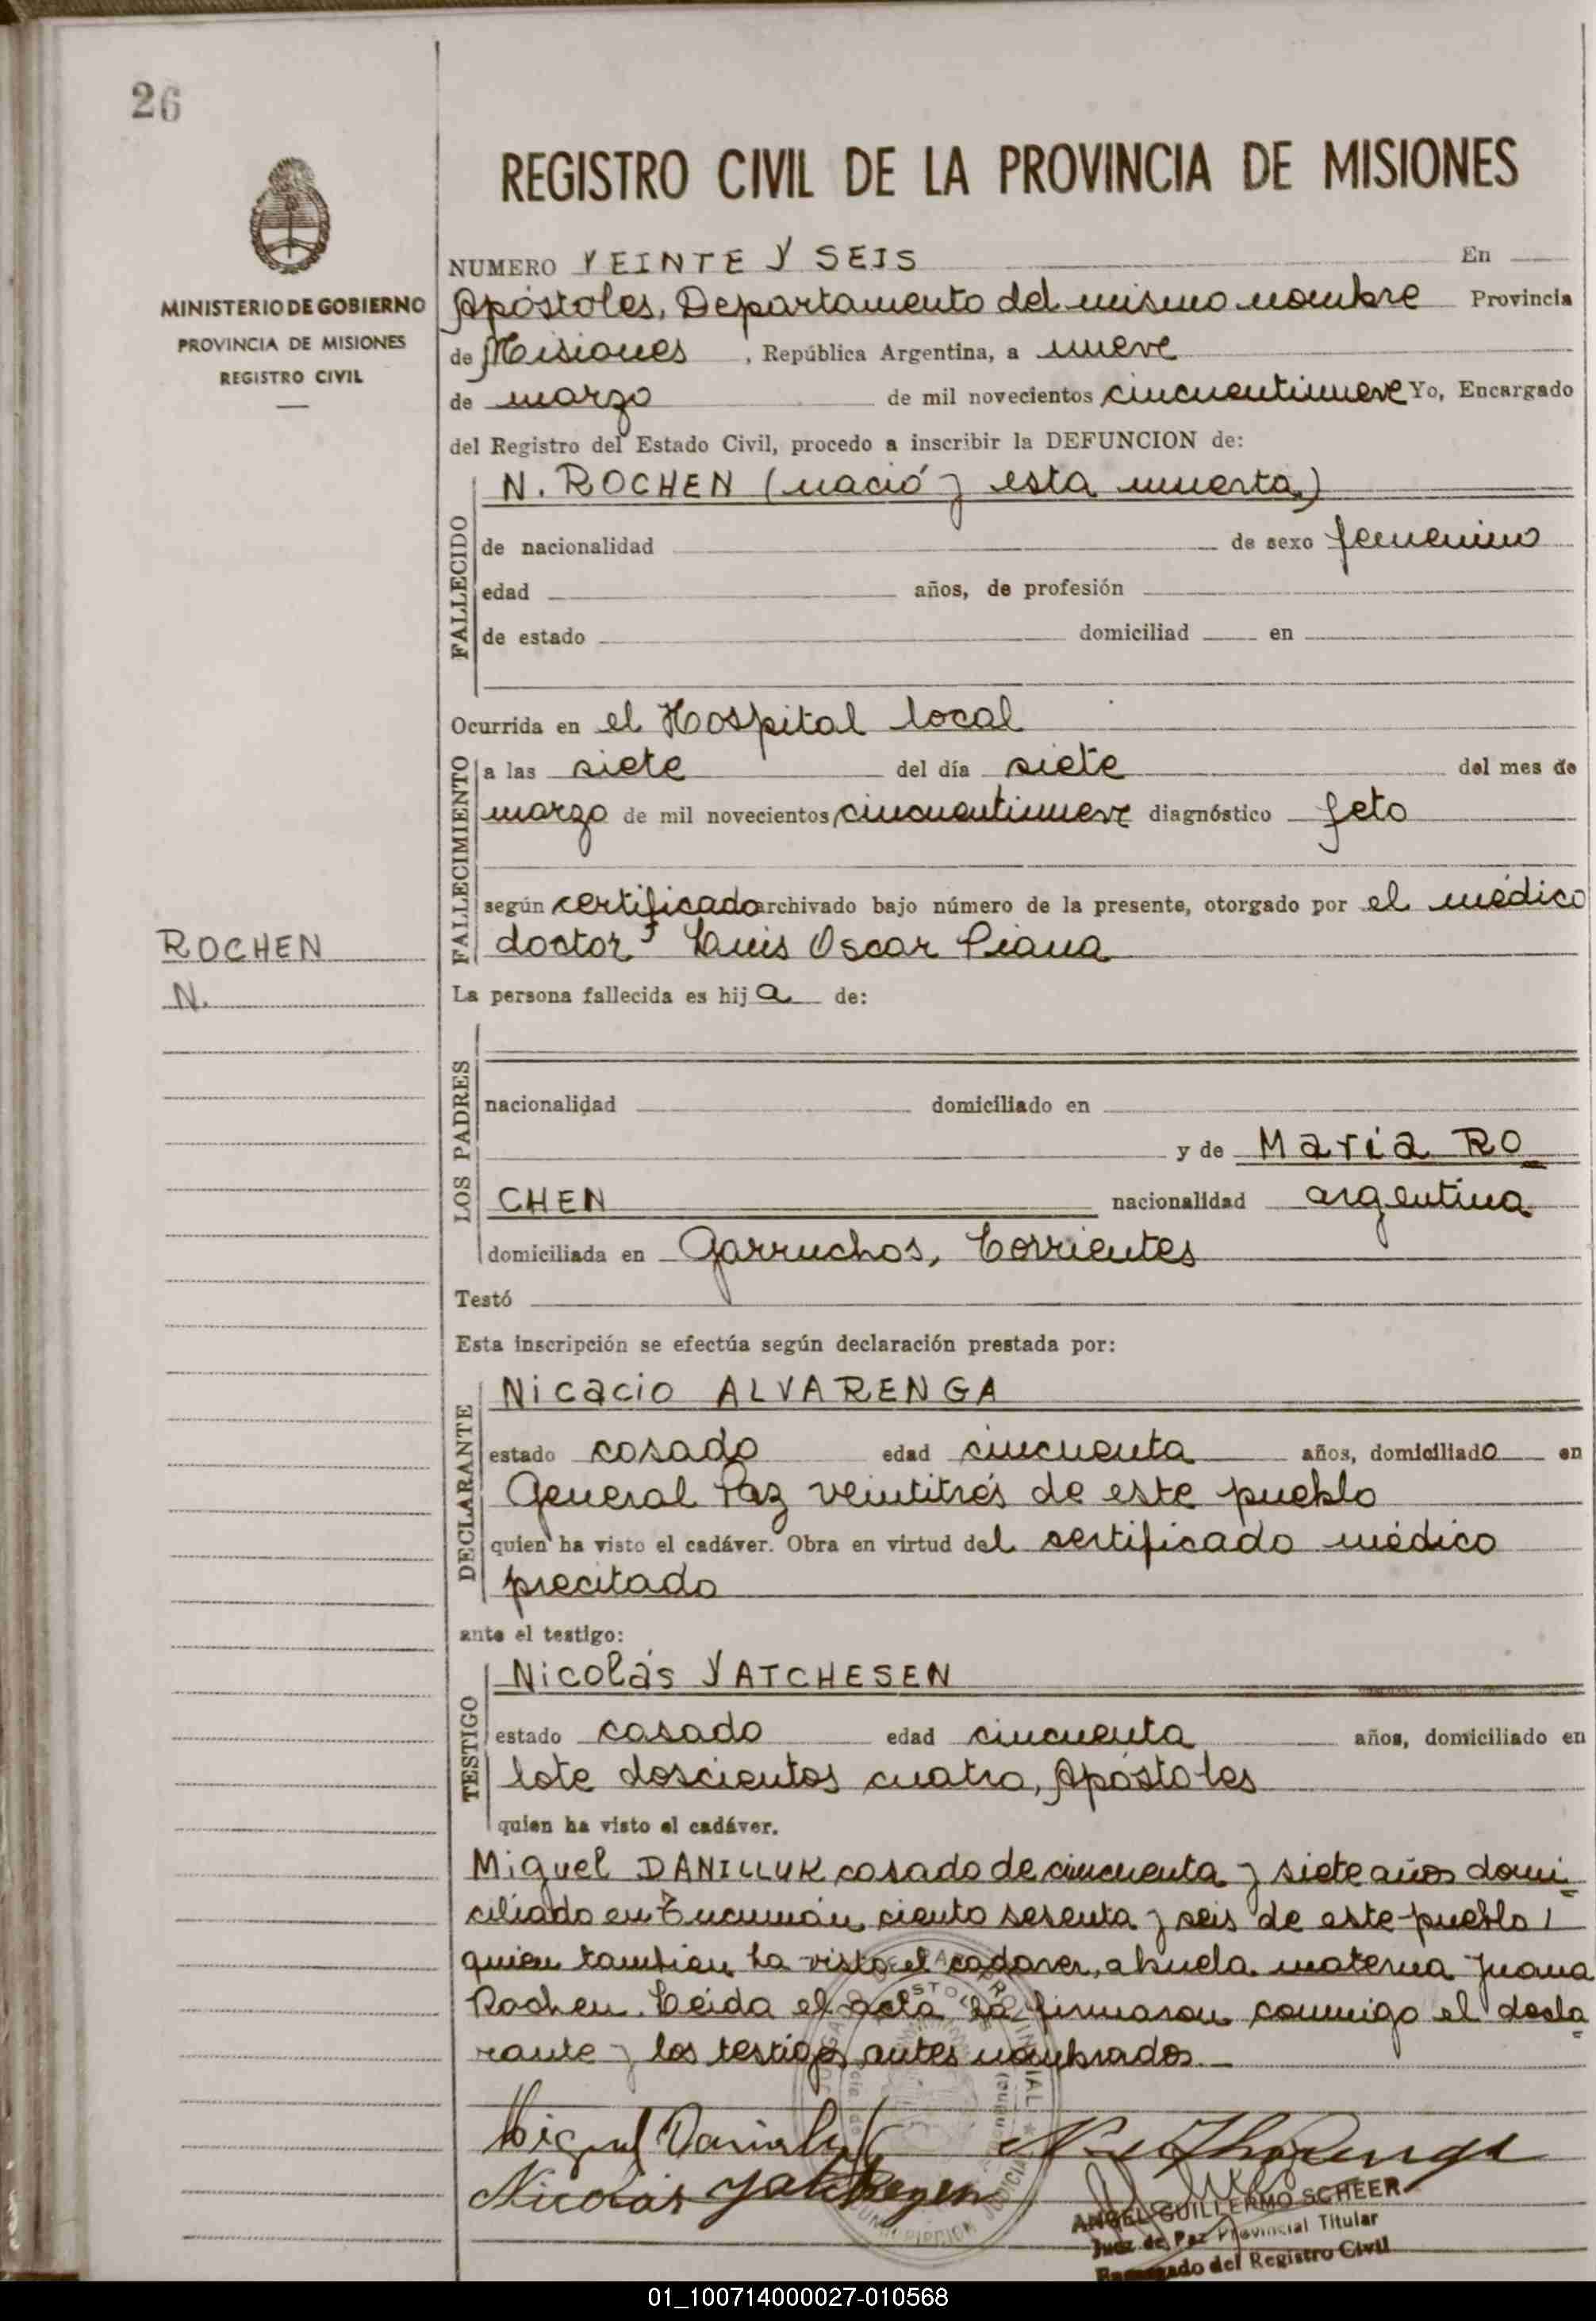 26
REGISTRO CIVIL DE LA PROVINCIA DE MISIONES
MINISTERIO DE GOBIERNO
PROVINCIA DE MISIONES
REGISTRO CIVIL
NUMERO VEINTE Y SEIS En
Apóstoles, Departamento del mismo nombre Provincia
de Misiones, República Argentina, a nueve
de marzo de mil novecientos cincuentinueve Yo, Encargado
del Registro del Estado Civil, procedo a inscribir la DEFUNCION de:
FALLECIDO
N. ROCHEN (nació y esta muerta)
de nacionalidad de sexo femenino
edad años, de profesión
de estado domiciliad en
Ocurrida en el Hospital local
FALLECIMIENTO
a las siete del día siete del mes de
marzo de mil novecientos cincuentinueve diagnóstico feto
según certificado archivado bajo número de la presente, otorgado por el médico
doctor Luis Oscar Piana
ROCHEN
N.
La persona fallecida es hija de:
LOS PADRES
nacionalidad domiciliado en
y de María RO
CHEN nacionalidad argentina
domiciliada en Garruchos, Corrientes
Testó
Esta inscripción se efectúa según declaración prestada por:
DECLARANTE
Nicacio ALVARENGA
estado casado edad cincuenta años, domiciliado en
General Paz veintitrés de este pueblo
quien ha visto el cadáver. Obra en virtud del sertificado médico
precitado
ante el testigo:
TESTIGO
Nicolás YATCHESEN
estado casado edad cincuenta años, domiciliado en
lote doscientos cuatro, Apóstoles
quien ha visto el cadáver.
Miguel DANILLUK casado de cincuenta y siete años domi
ciliado en Tucumán ciento sesenta y seis de este pueblo
quien tambien ha visto el cadaver, abuela materna Juana
Rochen. Leída el acta la firmaron conmigo el decla
rante y los testigos antes nombrados.
Miguel Daniluk
Nicolas Yatchesen
ANGEL GUILLERMO SCHEER
Juez de Paz Provincial Titular
Encargado del Registro Civil
01_100714000027-010568